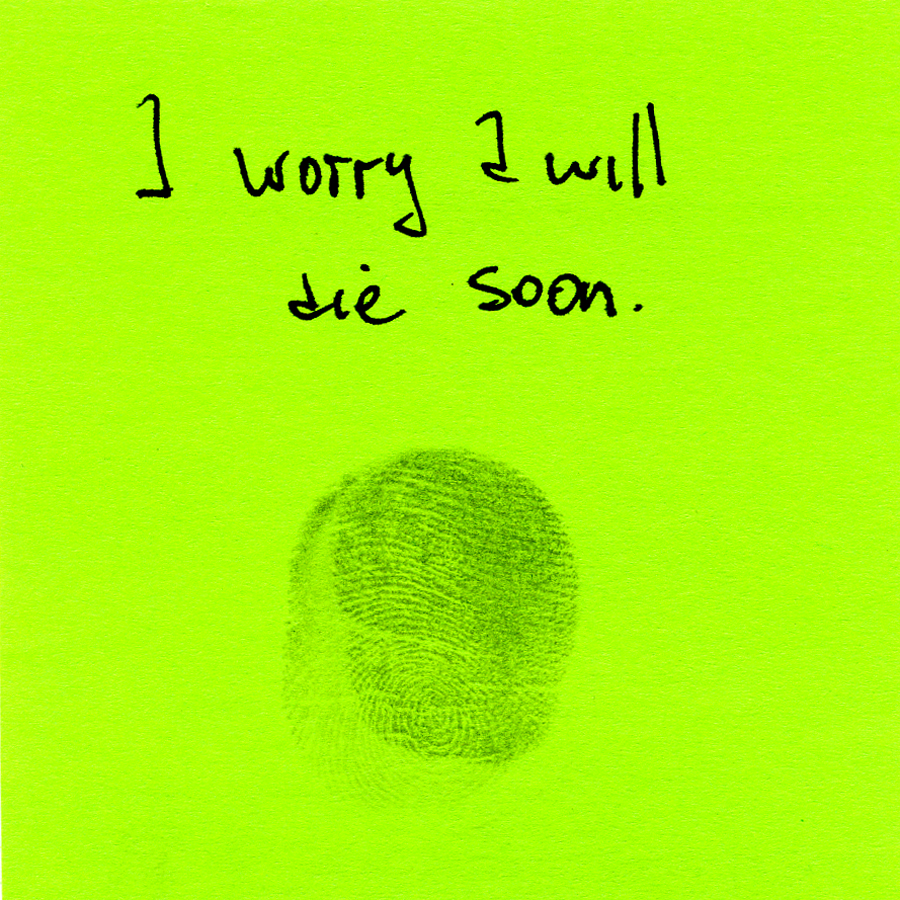 I worry I will
die soon.